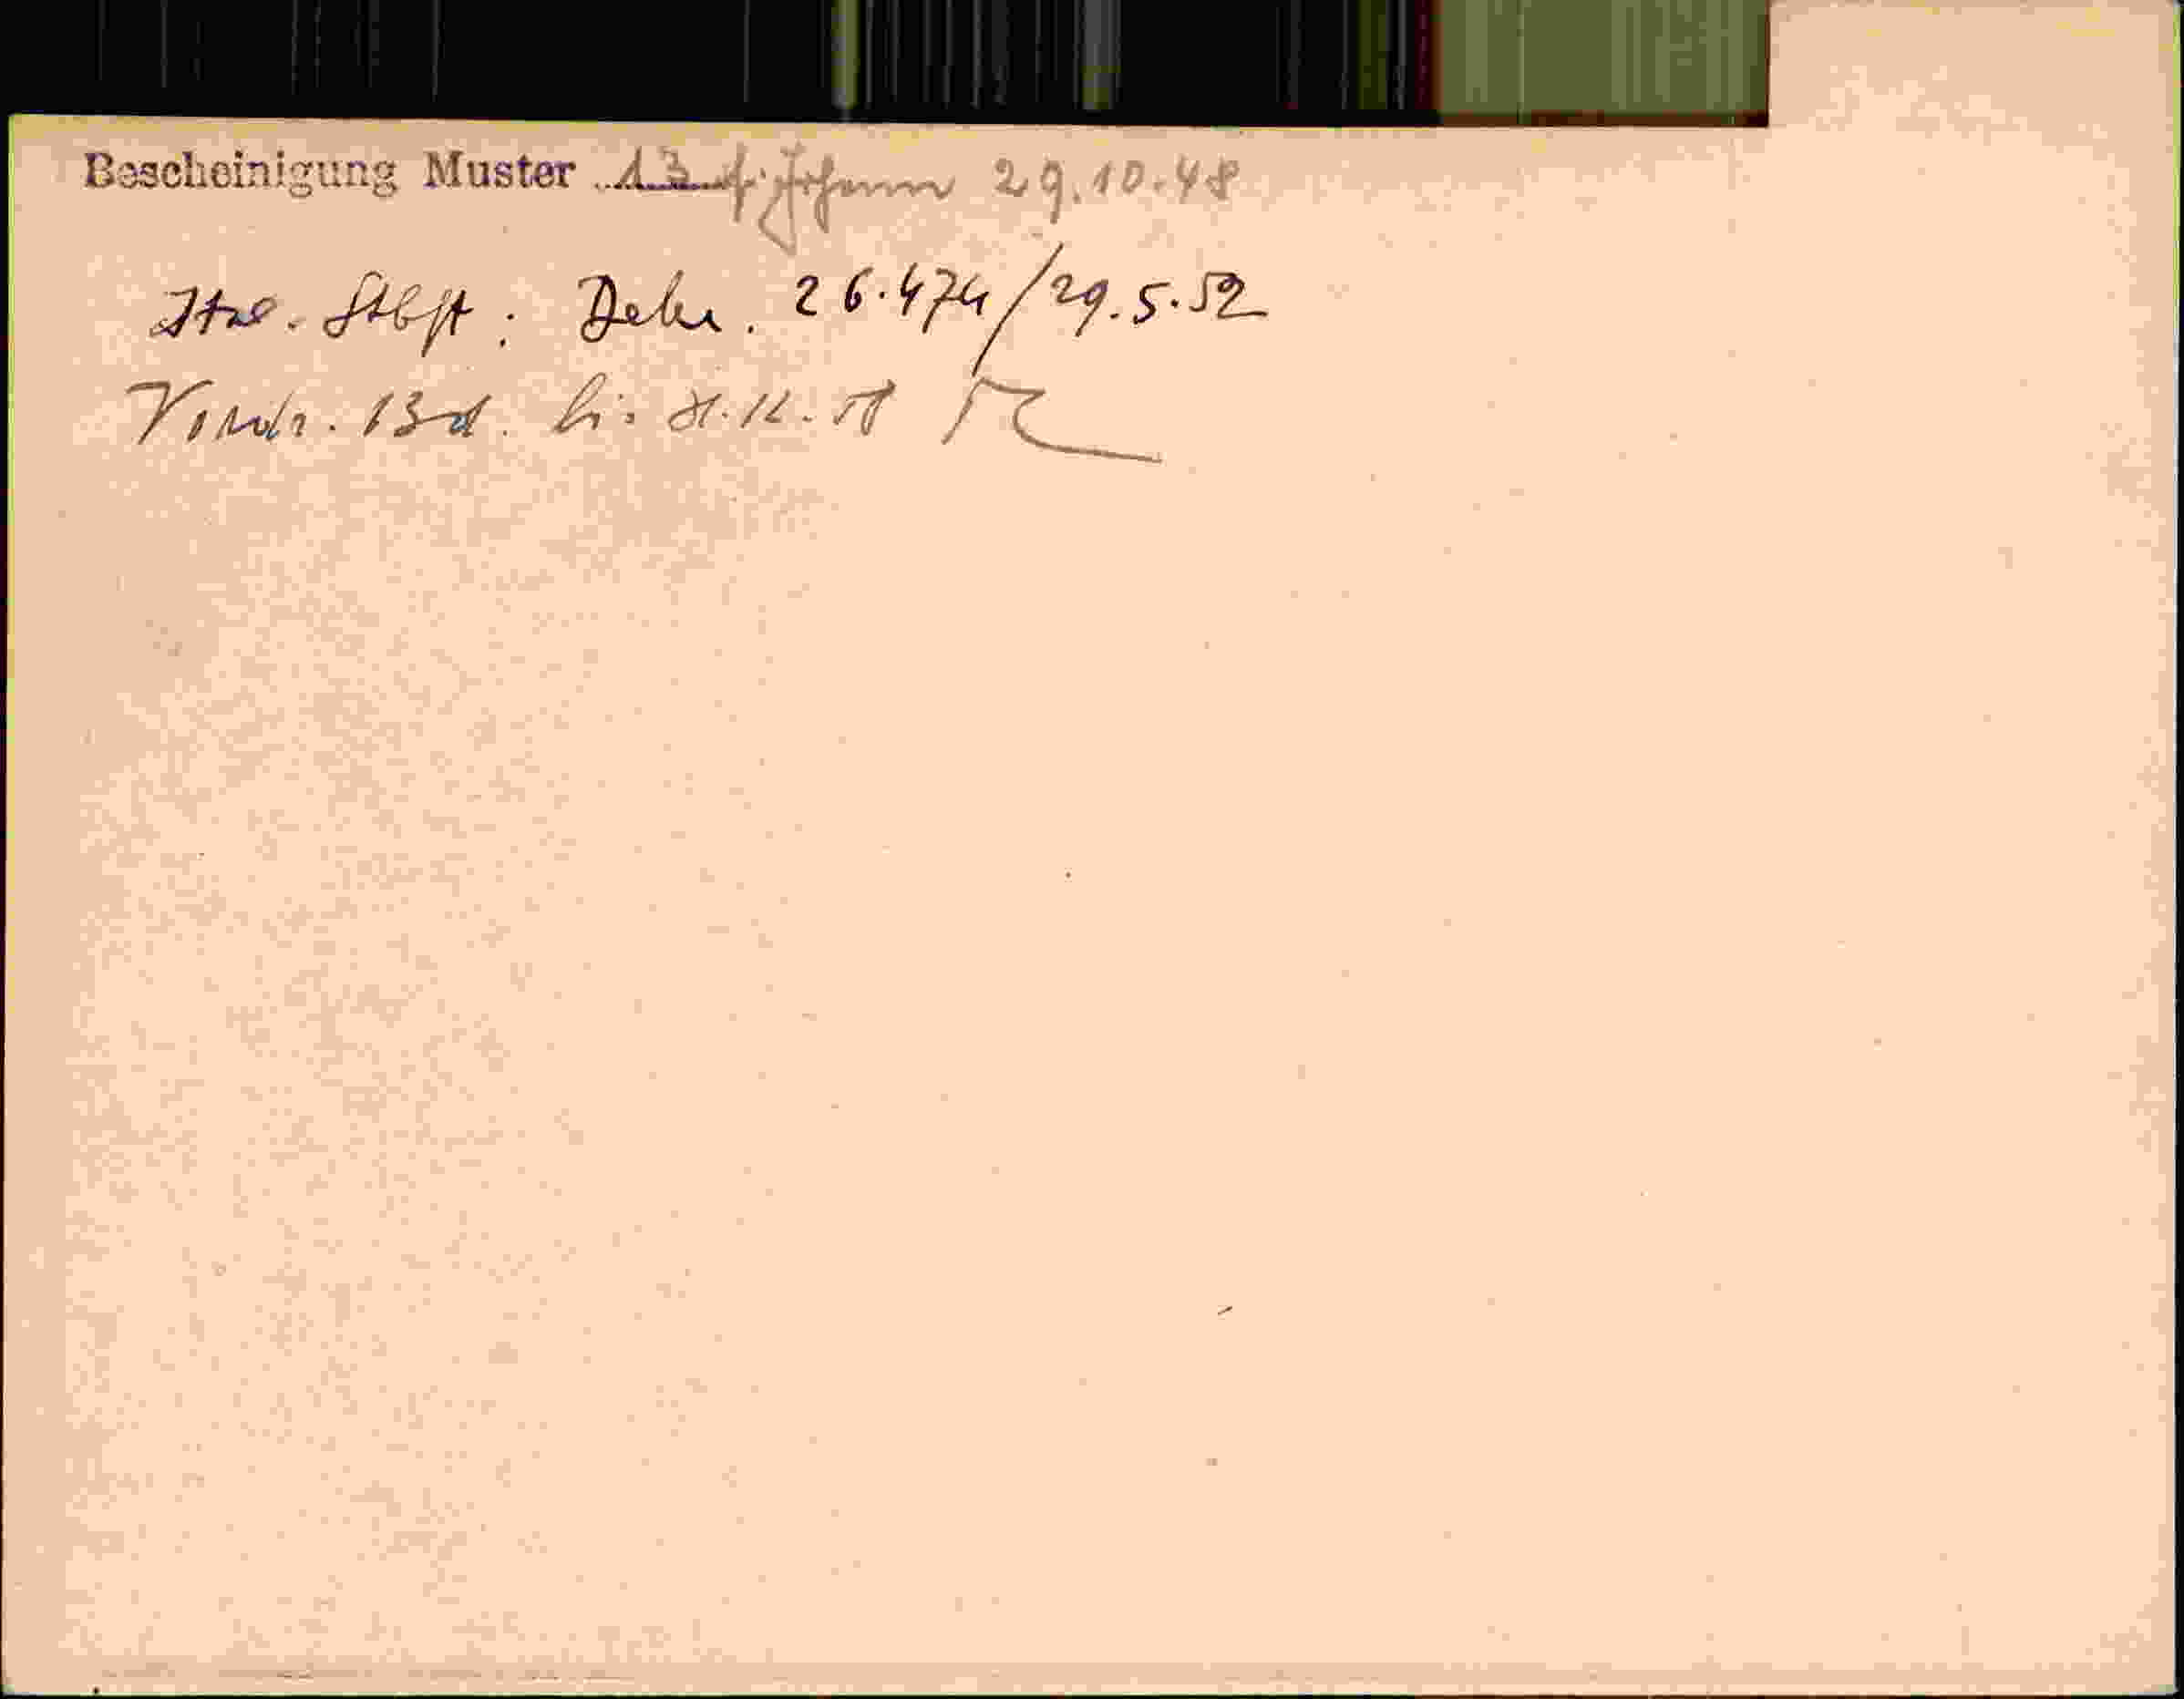 Bescheinigung Muster 13 f. Johann 29.10.48
Ital. Stbft: Dekr. 26.474/29.5.52
Vordr. 13 d. bis